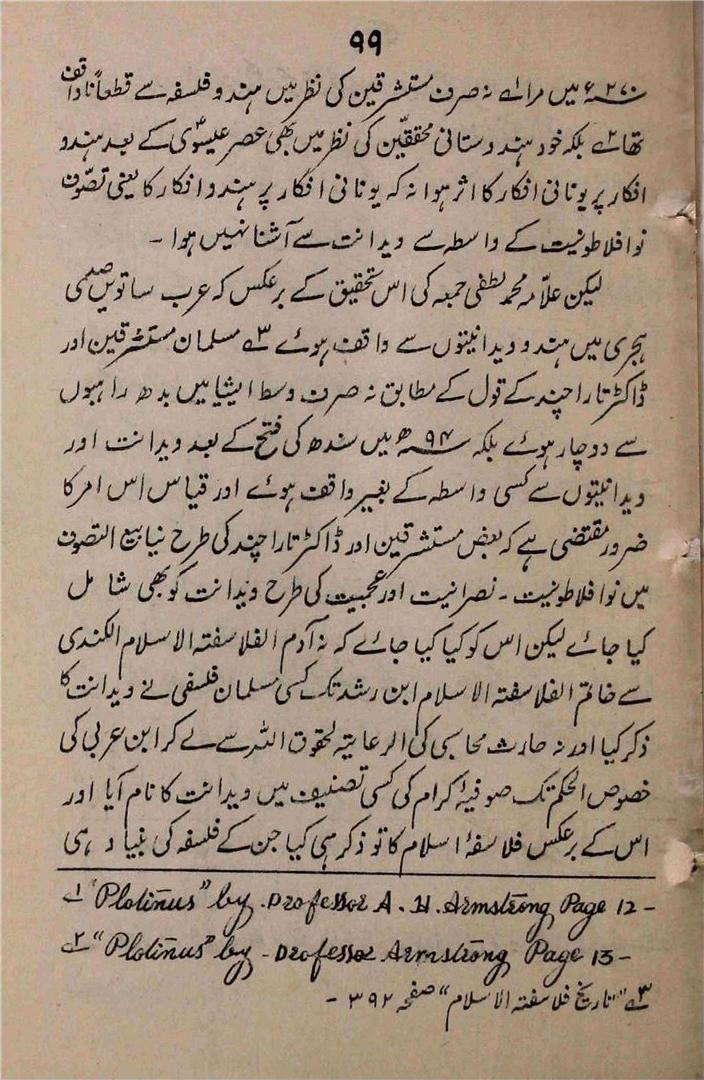 ۹۹
۲۷۰ء میں مرا ؎۱ نہ صرف مستشرقین کی نظر میں ہندو فلسفہ سے قطعاً ناواقف
تھا ؎۲ بلکہ خود ہندوستانی محققین کی نظر میں بھی عصر عیسوی کے بعد ہندو
افکار پر یونانی افکار کا اثر ہوا نہ کہ یونانی افکار پر ہندو افکار کا یعنی تصوّف
نوافلاطونیت کے واسطہ سے ویدانت سے آشنا نہیں ہوا ۔
لیکن علّامہ محمد لطفی جمعہ کی اس تحقیق کے برعکس کہ عرب ساتویں صدی
ہجری میں ہندو ویدانیتوں سے واقف ہوئے ؎۳ مسلمان مستشرقین اور
ڈاکٹر تارا چند کے قول کے مطابق نہ صرف وسط ایشیا میں بدھ راہبوں
سے دوچار ہوئے بلکہ ۹۴ھ میں سندھ کی فتح کے بعد ویدانت اور
ویدانیتوں سے کسی واسطہ کے بغیر واقف ہوئے اور قیاس اس امر کا
ضرور مقتضی ہے کہ بعض مستشرقین اور ڈاکٹر تارا چند کی طرح نیابیع التصوف
میں نوافلاطونیت ۔ نصرانیت اور عجمیت کی طرح ویدانت کو بھی شامل
کیا جائے لیکن اس کو کیا کیا جائے کہ نہ آدم الفلاسفتہ الاسلام الکندی
سے خاتم الفلاسفتہ الاسلام ابن رشد تک کسی مسلمان فلسفی نے ویدانت کا
ذکر کیا اور نہ حارث محاسبی کی الرعایتہ لحقوق اللہ سے لے کر ابن عربی کی
خصوص الحکم تک صوفیۂ کرام کی کسی تصنیف میں ویدانت کا نام آیا اور
اس کے برعکس فلاسفۂ اسلام کا تو ذکر ہی کیا جن کے فلسفہ کی بنیاد ہی
؎۱ "Plotinus" by . Professor A . H . Armstrong Page 12 -
؎۲ "Plotinus" by - Professor Armstrong Page 13 -
؎۳ "تاریخ فلاسفتہ الاسلام" صفحہ ۳۹۲ -